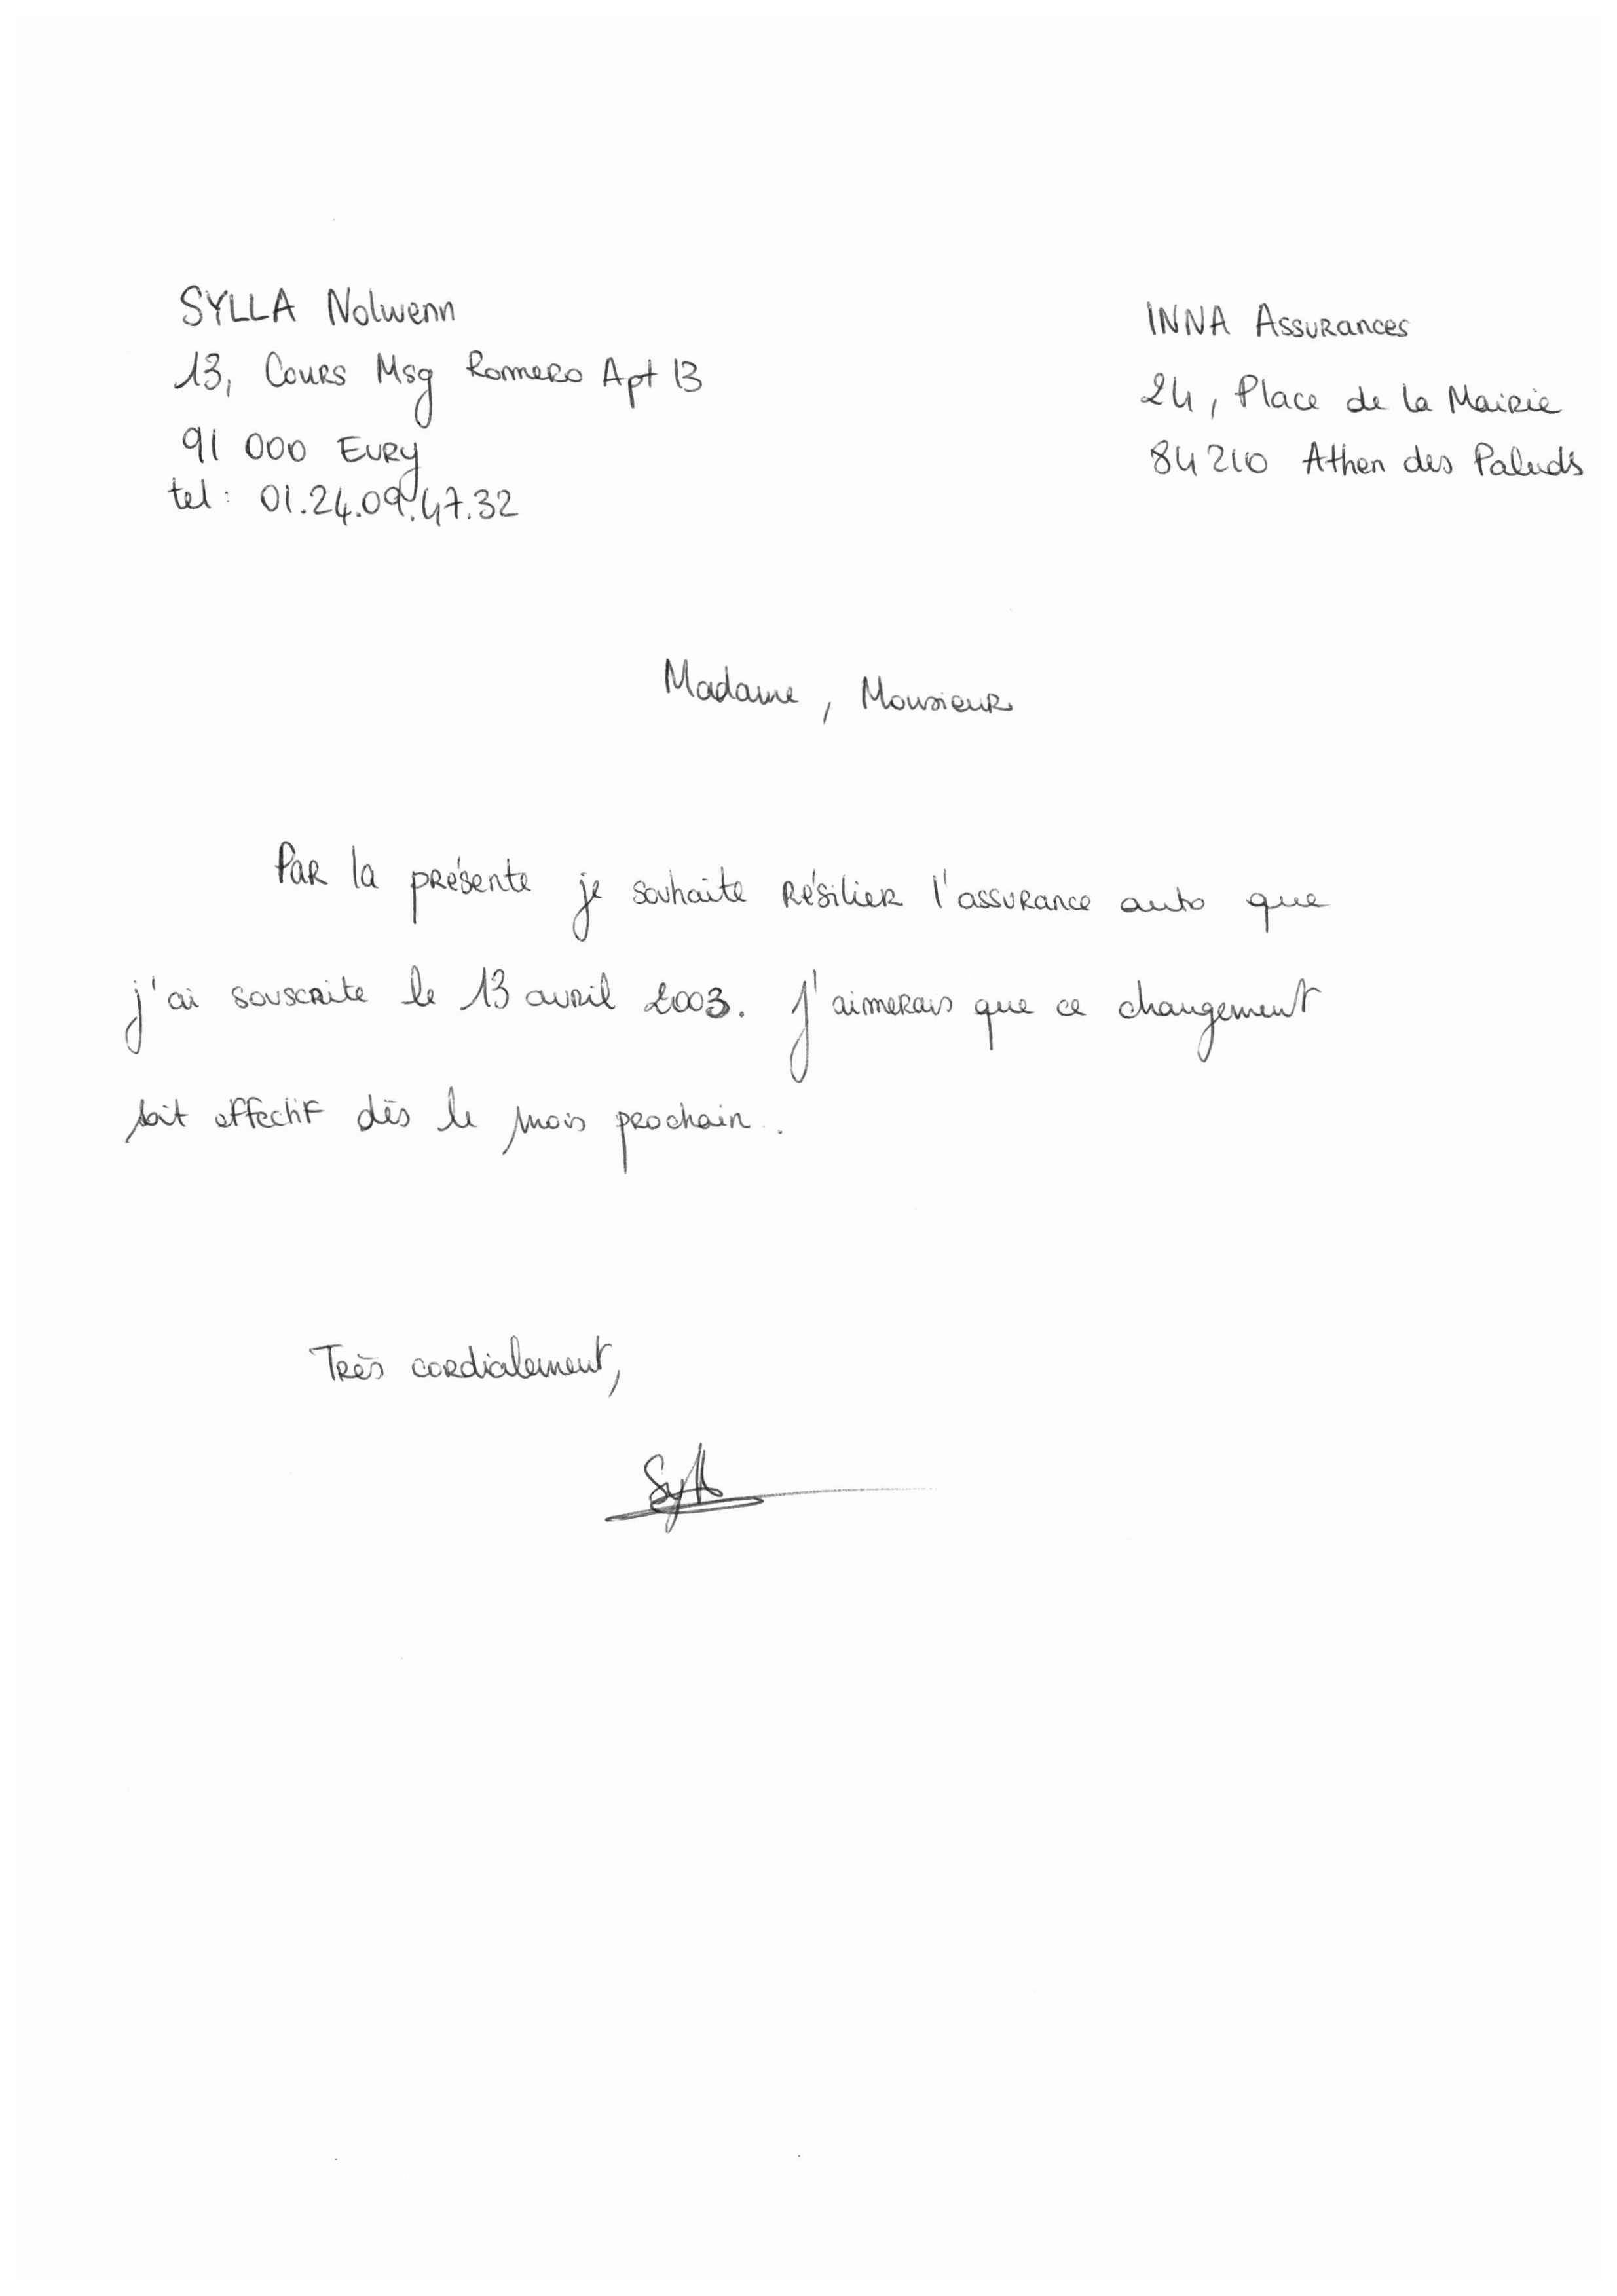 SYLLA Nolwenn
13, Cours Msg Romero Apt 13
91 000 EVRY
tel : 01.24.09.47.32
INNA Assurances
24, Place de la Mairie
84210 Athen des Paluds
Madame, Monsieur
Par la présente je souhaite résilier l'assurance auto que
j'ai souscrite le 13 avril 2003. J'aimerais que ce changement
soit effectif dès le mois prochain.
Très cordialement,
Sylla